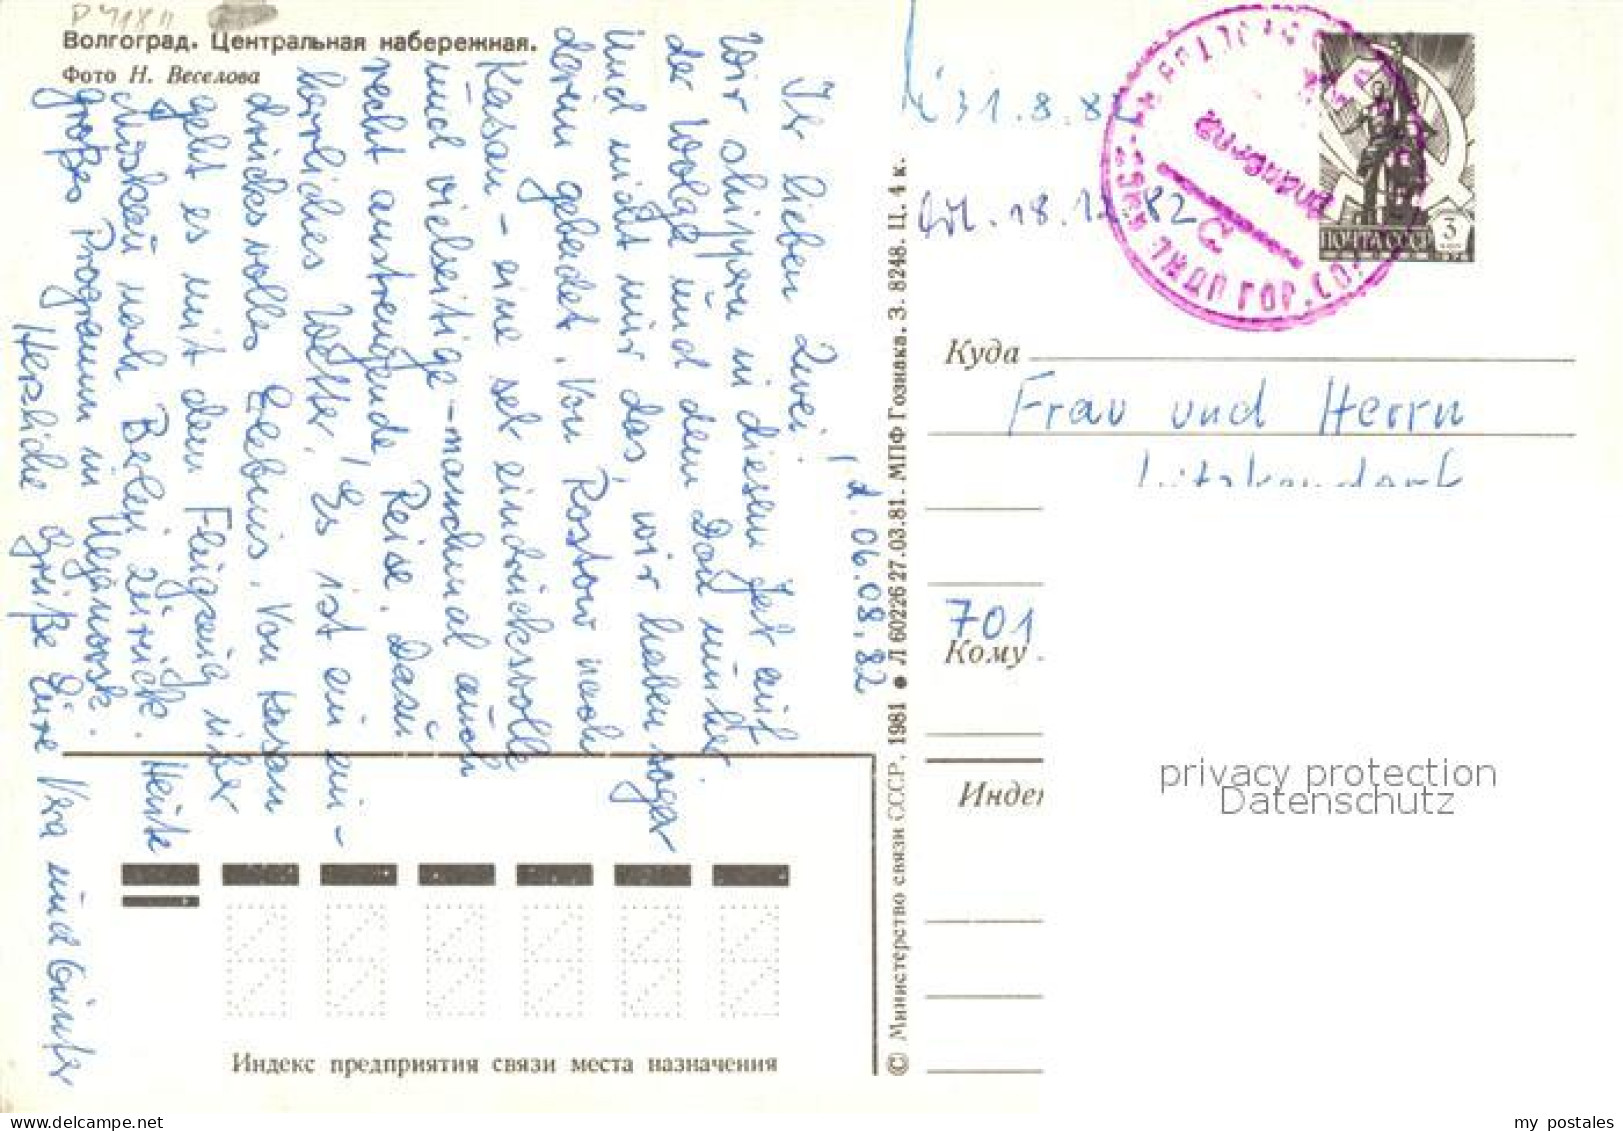 Р418п
Волгоград. Центральная набережная.
Фото Н. Веселова
d. 06.08.82
Ihr lieben Zwei!
Wir schippern in diesem Jahr auf
der Wolga und dem Don umher
und nicht nur das, wir haben sogar
darin gebadet. Von Rostow nach
Kasan - eine sehr eindrucksvolle
und vielseitige - manchmal auch
recht anstrengende Reise. Dazu
herrliches Wetter! Es ist ein ein-
drucksvolles Erlebnis. Von Kasan
geht es mit dem Flugzeug über
Moskau nach Berlin zurück. Heute
großes Programm in Uljanowsk.
Herzliche Grüße Eure Vera und Günter
Индекс предприятия связи места назначения
© Министерство связи СССР, 1981 ● Л 60226 27.03.81. МПФ Гознака. З. 8248. Ц. 4 к.
31.8.82
18.11.82
ПОЧТА СССР
3
коп
Куда
Frau und Herrn
701
Кому
Индек
privacy protection
Datenschutz
my postales